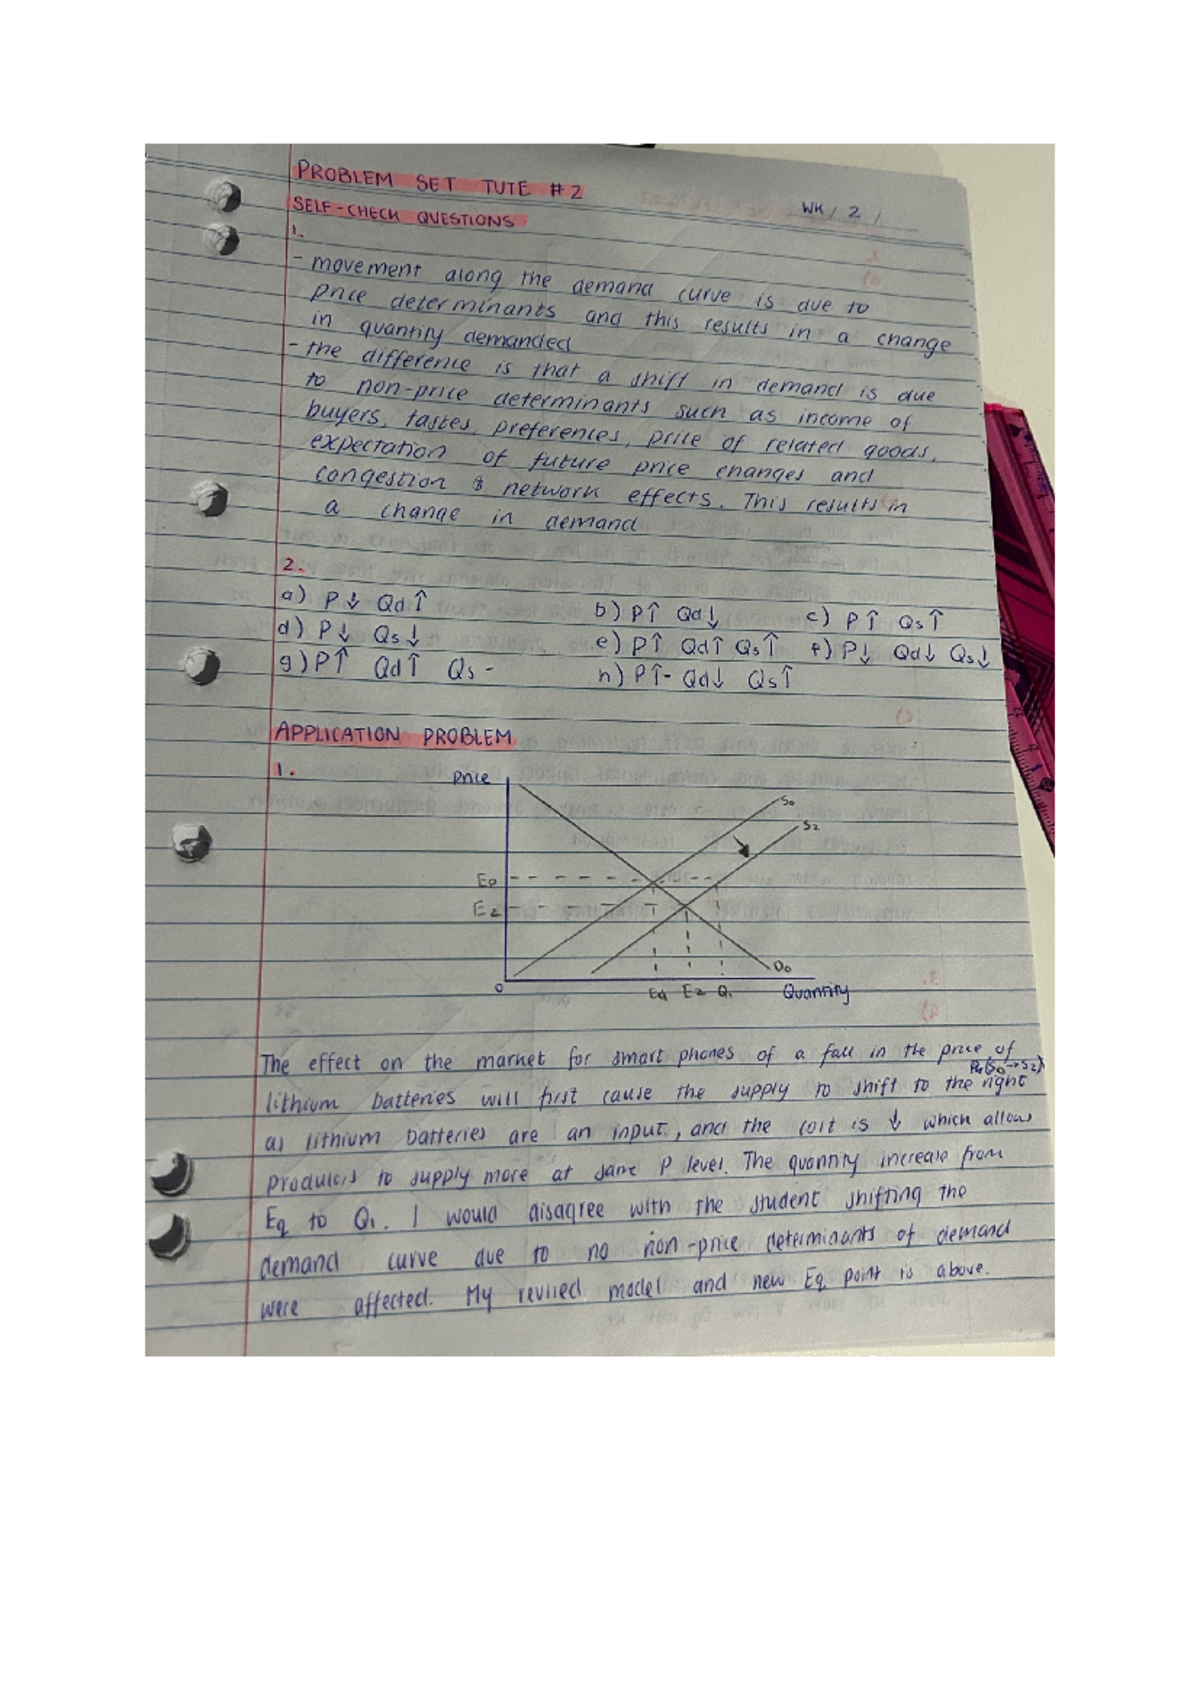 PROBLEM SET TUTE #2
WK / 2 /
SELF-CHECK QUESTIONS
1.
- movement along the demand curve is due to
price determinants and this results in a change
in quantity demanded
- the difference is that a shift in demand is due
to non-price determinants such as income of
buyers, tastes, preferences, price of related goods,
expectation of future price changes and
congestion & network effects. This results in
a change in demand
2.
a) P↓ Qd↑ b) P↑ Qd↓ c) P↑ Qs↑
d) P↓ Qs↓ e) P↑ Qd↑ Qs↑ f) P↓ Qd↓ Qs↓
g) P↑ Qd↑ Qs - h) P↑- Qd↓ Qs↑
APPLICATION PROBLEM
1.
Price
S0
S2
Ep
E2
D0
0
Eq E2 Q1 Quantity
The effect on the market for smart phones of a fall in the price of
lithium batteries will first cause the supply to shift to the right
(S0→S2)
as lithium batteries are an input, and the cost is ↓ which allows
producers to supply more at same P level. The quantity increase from
Eq to Q1. I would disagree with the student shifting the
demand curve due to no non-price determinants of demand
were affected. My revised model and new Eq point is above.